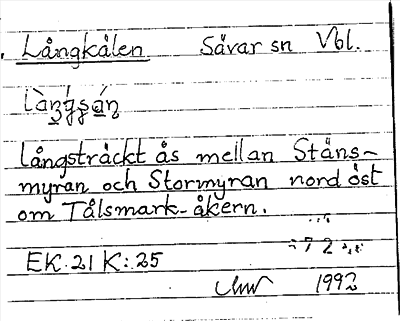 Långkålen Sävar sn Vbl.
Långsträckt ås mellan Stäns-
myran och Stormyran nord öst
om Tålsmark-åkern.
EK.21 K:.25
1992